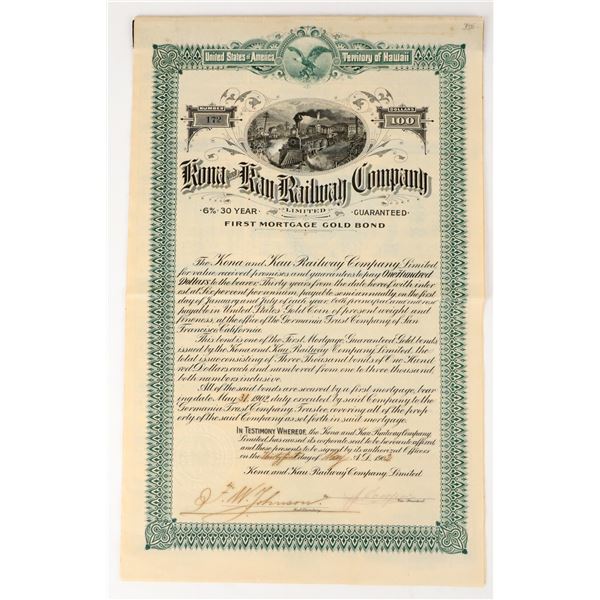 United States of America,
Territory of Hawaii
NUMBER
172
DOLLARS
100
Kona and Kau Railway Company
LIMITED
6% · 30 YEAR · GUARANTEED
FIRST MORTGAGE GOLD BOND
The Kona and Kau Railway Company, Limited
for value received promises and guarantees to pay One Hundred
Dollars to the bearer Thirty years from the date hereof with inter
est at Six per cent per annum, payable semi annually on the first
day of January and July of each year, both principal and interest
payable in United States Gold Coin, of present weight and
fineness, at the office of the Germania Trust Company of San
Francisco California.
This bond is one of the First Mortgage Guaranteed Gold bonds
issued by the Kona and Kau Railway Company Limited, the
total issue consisting of Three Thousand bonds of One Hund
red Dollars each and numbered from one to three thousand
both numbers inclusive.
All of the said bonds are secured by a first mortgage, bear
ing date May 31 1902, duly executed by said Company to the
Germania Trust Company, Trustee, covering all of the prop
erty of the said Company as set forth in said mortgage.
IN TESTIMONY WHEREOF, the Kona and Kau Railway Company
Limited, has caused its corporate seal to be hereunto affixed
and these presents to be signed by its authorized Officers
in the day of May A.D. 190
Kona and Kau Railway Company, Limited
Johnson